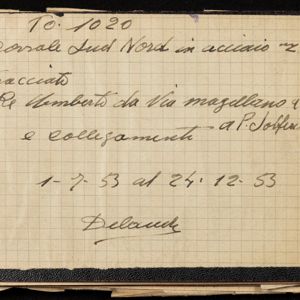 To. 1020
Sud Nord in acciaio "2
tracciato
Re Umberto da Via Magellano a
e collegamenti - a P. Solferi
1-7-53 al 24-12-53